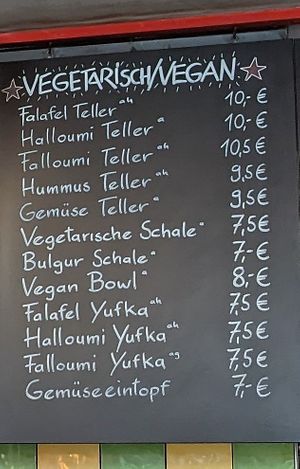 VEGETARISCH/VEGAN
Falafel Teller ah 10,- €
Halloumi Teller a 10,- €
Falloumi Teller ah 10,5 €
Hummus Teller ah 9,5 €
Gemüse Teller a 9,5 €
Vegetarische Schale a 7,5 €
Bulgur Schale a 7,- €
Vegan Bowl a 8,- €
Falafel Yufka ah 7,5 €
Halloumi Yufka ah 7,5 €
Falloumi Yufka ag 7,5 €
Gemüseeintopf 7,- €